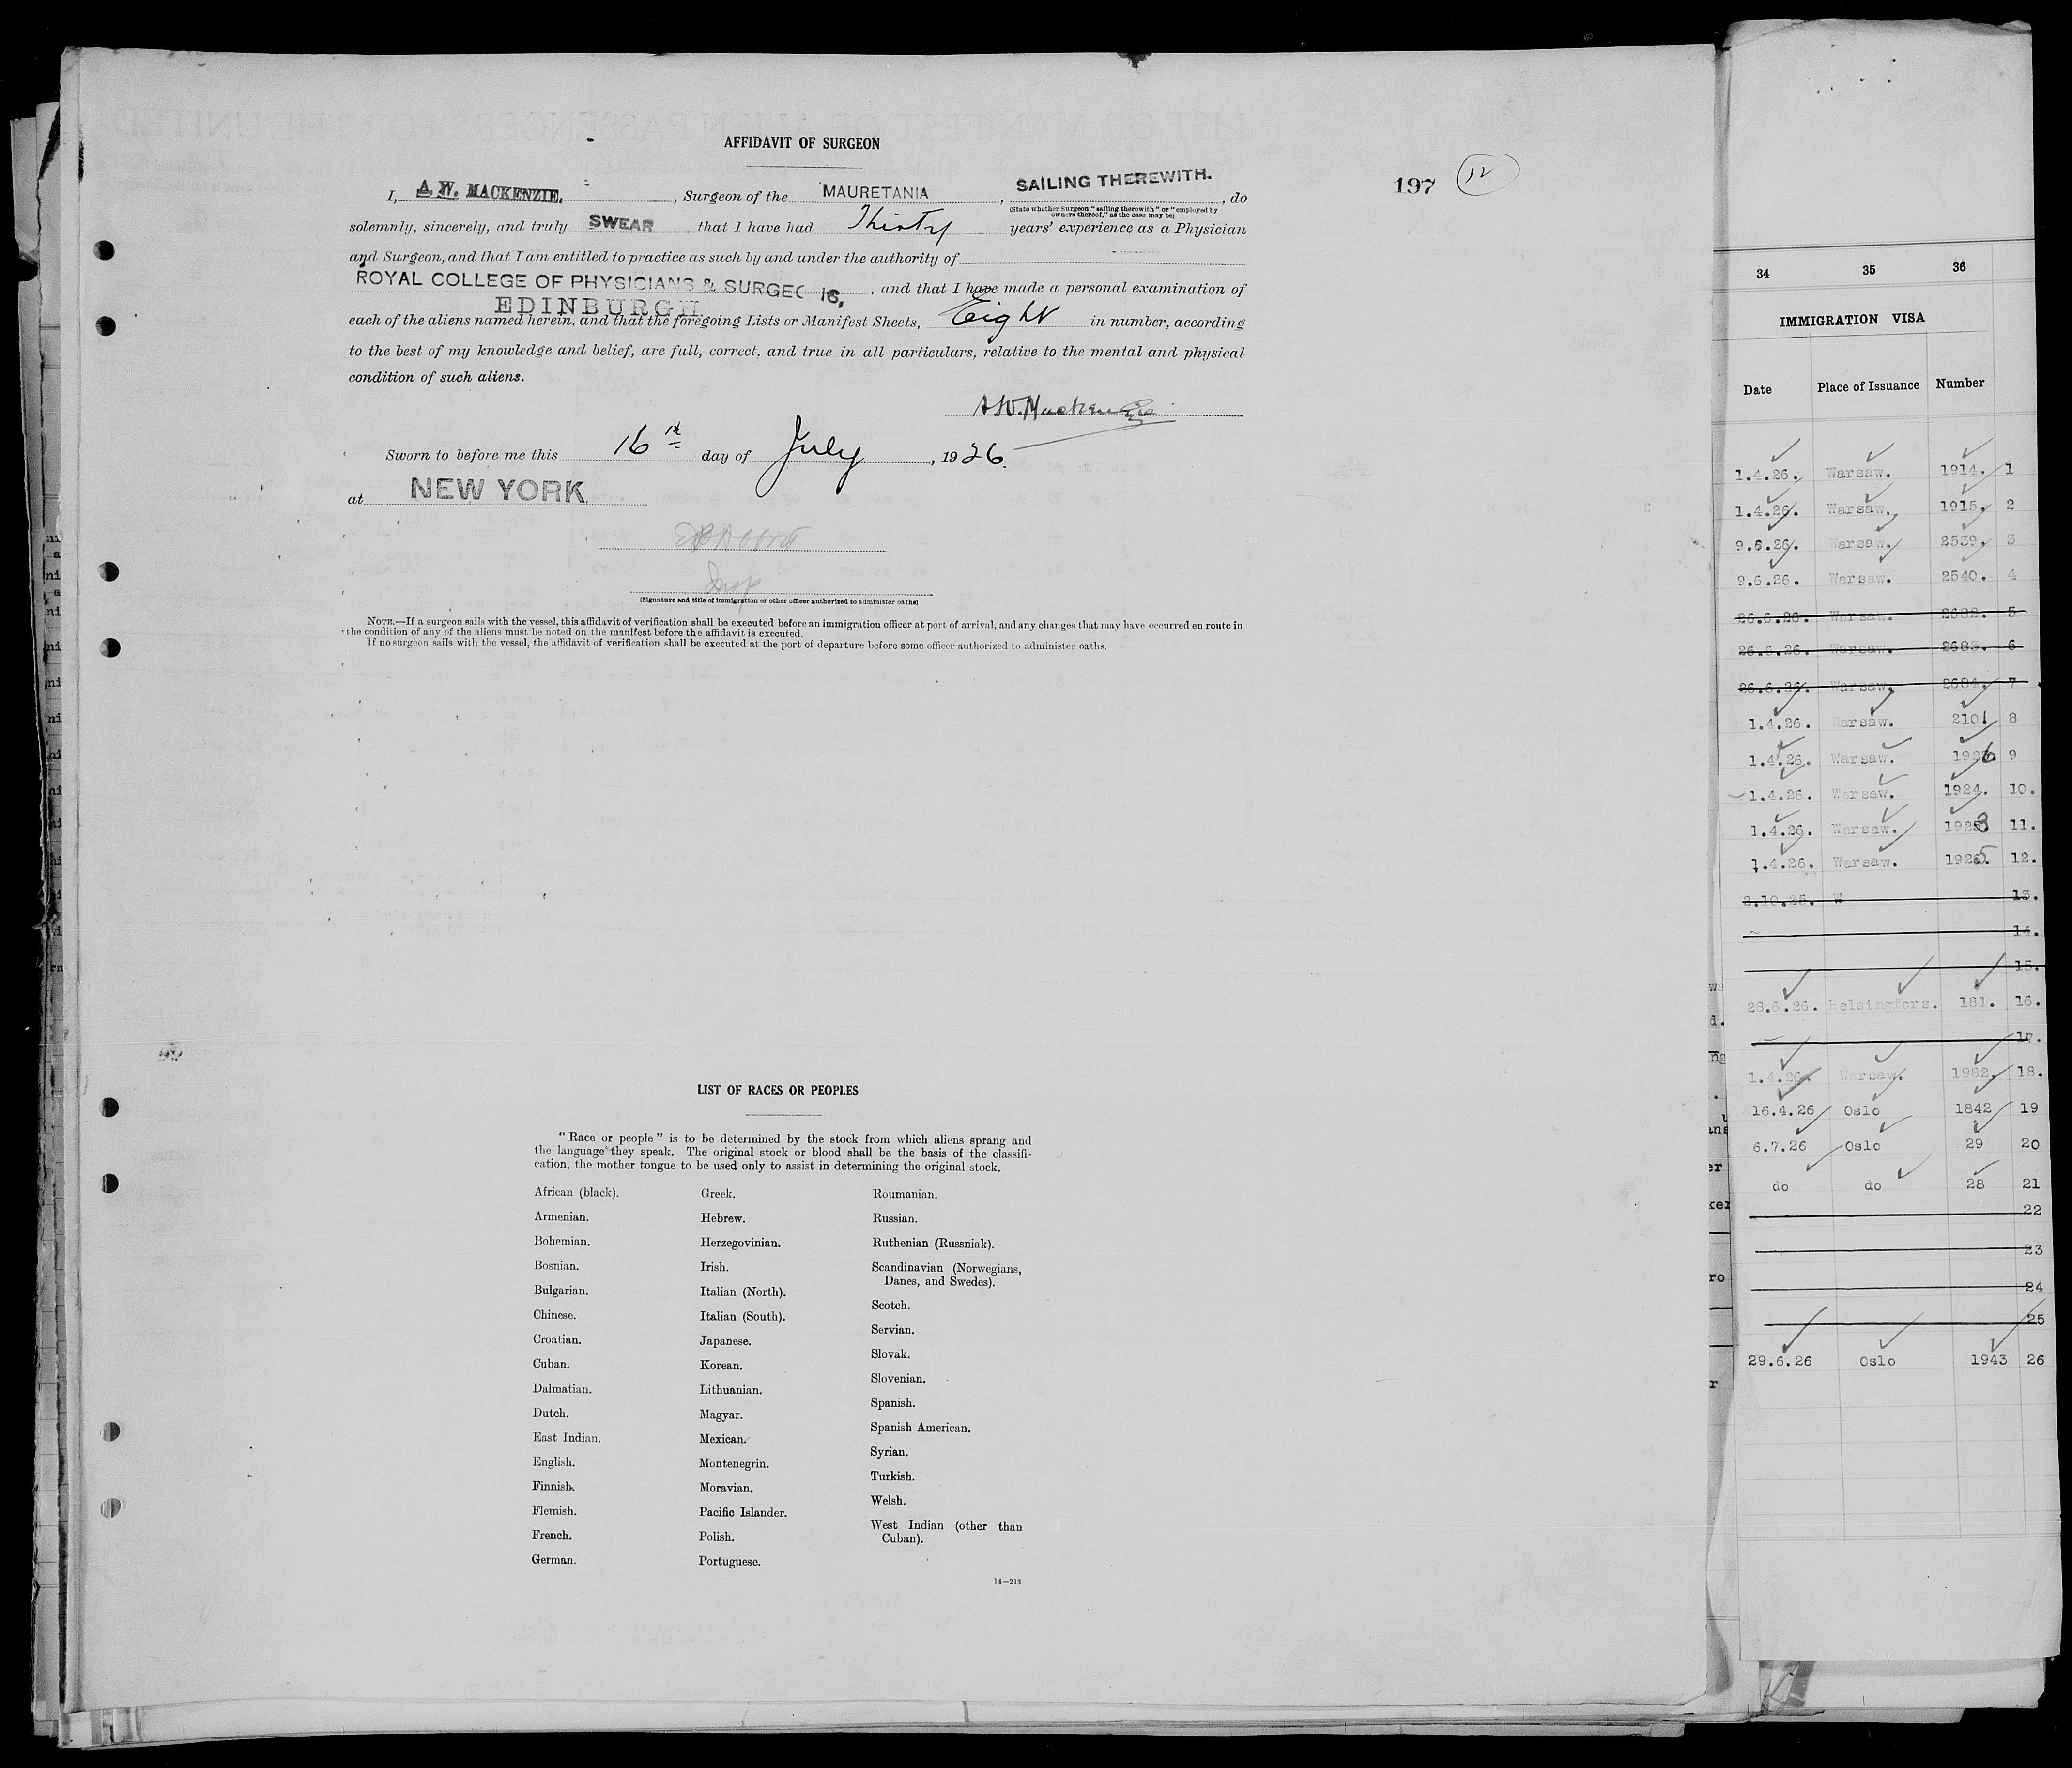 AFFIDAVIT OF SURGEON
I, A. W. MACKENZIE, , Surgeon of the MAURETANIA , SAILING THEREWITH. , do
(State whether Surgeon "sailing therewith" or "employed by owners thereof," as the case may be)
solemnly, sincerely, and truly SWEAR that I have had Thirty years' experience as a Physician
and Surgeon, and that I am entitled to practice as such by and under the authority of
ROYAL COLLEGE OF PHYSICIANS & SURGEO , and that I have made a personal examination of
EDINBURGH
each of the aliens named herein, and that the foregoing Lists or Manifest Sheets, Eight in number, according
to the best of my knowledge and belief, are full, correct, and true in all particulars, relative to the mental and physical
condition of such aliens.
A.W. Mackenzie
Sworn to before me this 16th day of July , 1926.
at NEW YORK
(Signature and title of immigration or other officer authorized to administer oaths)
NOTE.—If a surgeon sails with the vessel, this affidavit of verification shall be executed before an immigration officer at port of arrival, and any changes that may have occurred en route in
the condition of any of the aliens must be noted on the manifest before the affidavit is executed.
If no surgeon sails with the vessel, the affidavit of verification shall be executed at the port of departure before some officer authorized to administer oaths.
197 12
LIST OF RACES OR PEOPLES
"Race or people" is to be determined by the stock from which aliens sprang and
the language they speak. The original stock or blood shall be the basis of the classifi-
cation, the mother tongue to be used only to assist in determining the original stock.
African (black).
Armenian.
Bohemian.
Bosnian.
Bulgarian.
Chinese.
Croatian.
Cuban.
Dalmatian.
Dutch.
East Indian.
English.
Finnish.
Flemish.
French.
German.
Greek.
Hebrew.
Herzegovinian.
Irish.
Italian (North).
Italian (South).
Japanese.
Korean.
Lithuanian.
Magyar.
Mexican.
Montenegrin.
Moravian.
Pacific Islander.
Polish.
Portuguese.
Roumanian.
Russian.
Ruthenian (Russniak).
Scandinavian (Norwegians,
Danes, and Swedes).
Scotch.
Servian.
Slovak.
Slovenian.
Spanish.
Spanish American.
Syrian.
Turkish.
Welsh.
West Indian (other than
Cuban).
14—213
34 35 36
IMMIGRATION VISA
Date Place of Issuance Number
1.4.26. Warsaw. 1914. 1
1.4.26. Warsaw. 1915. 2
9.6.26. Warsaw. 2539. 3
9.6.26. Warsaw. 2540. 4
26.6.26. Warsaw. 2682. 5
26.6.26. Warsaw. 2683. 6
26.6.26. Warsaw. 2684. 7
1.4.26. Warsaw. 2101 8
1.4.26. Warsaw. 1926 9
1.4.26. Warsaw. 1924. 10.
1.4.26. Warsaw. 1923 11.
1.4.26. Warsaw. 1925. 12.
2.10.25. W 13.
14.
15.
28.6.26. Helsingfors. 181. 16.
17.
1.4.26. Warsaw. 1982. 18.
16.4.26 Oslo 1842 19
6.7.26 Oslo 29 20
do do 28 21
22
23
24
25
29.6.26 Oslo 1943 26